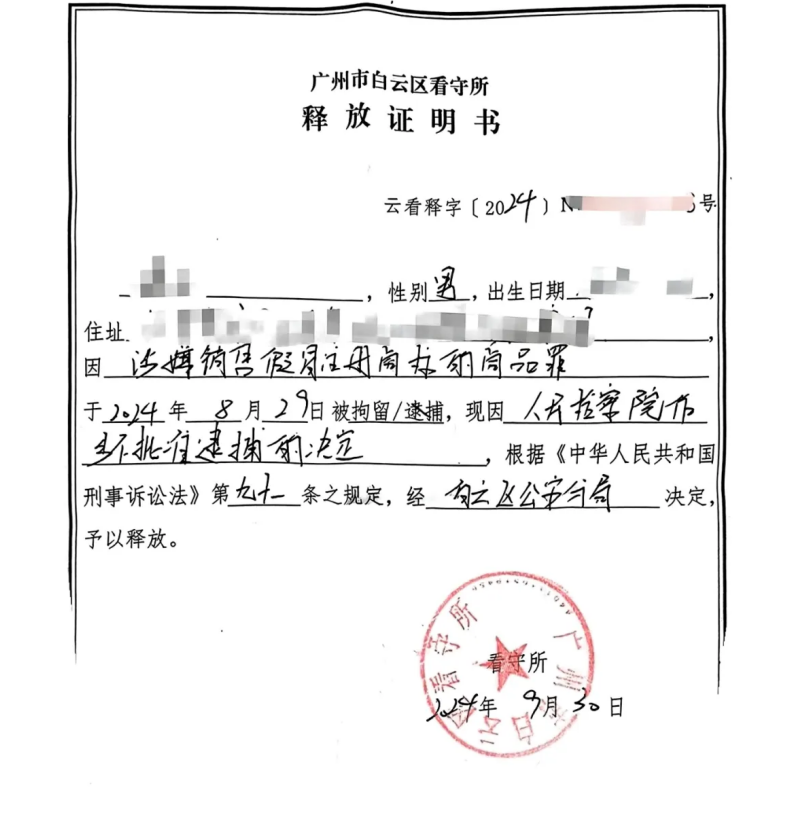 广州市白云区看守所
释放证明书
云看释字〔2024〕N 号
，性别男，出生日期 ，
住址
因涉嫌销售假冒注册商标的商品罪
于2024年8月29日被拘留/逮捕，现因人民检察院作
不批准逮捕的决定，根据《中华人民共和国
刑事诉讼法》第九十一条之规定，经白云区公安分局决定，
予以释放。
广州市白云区看守所
看守所
2024年9月30日